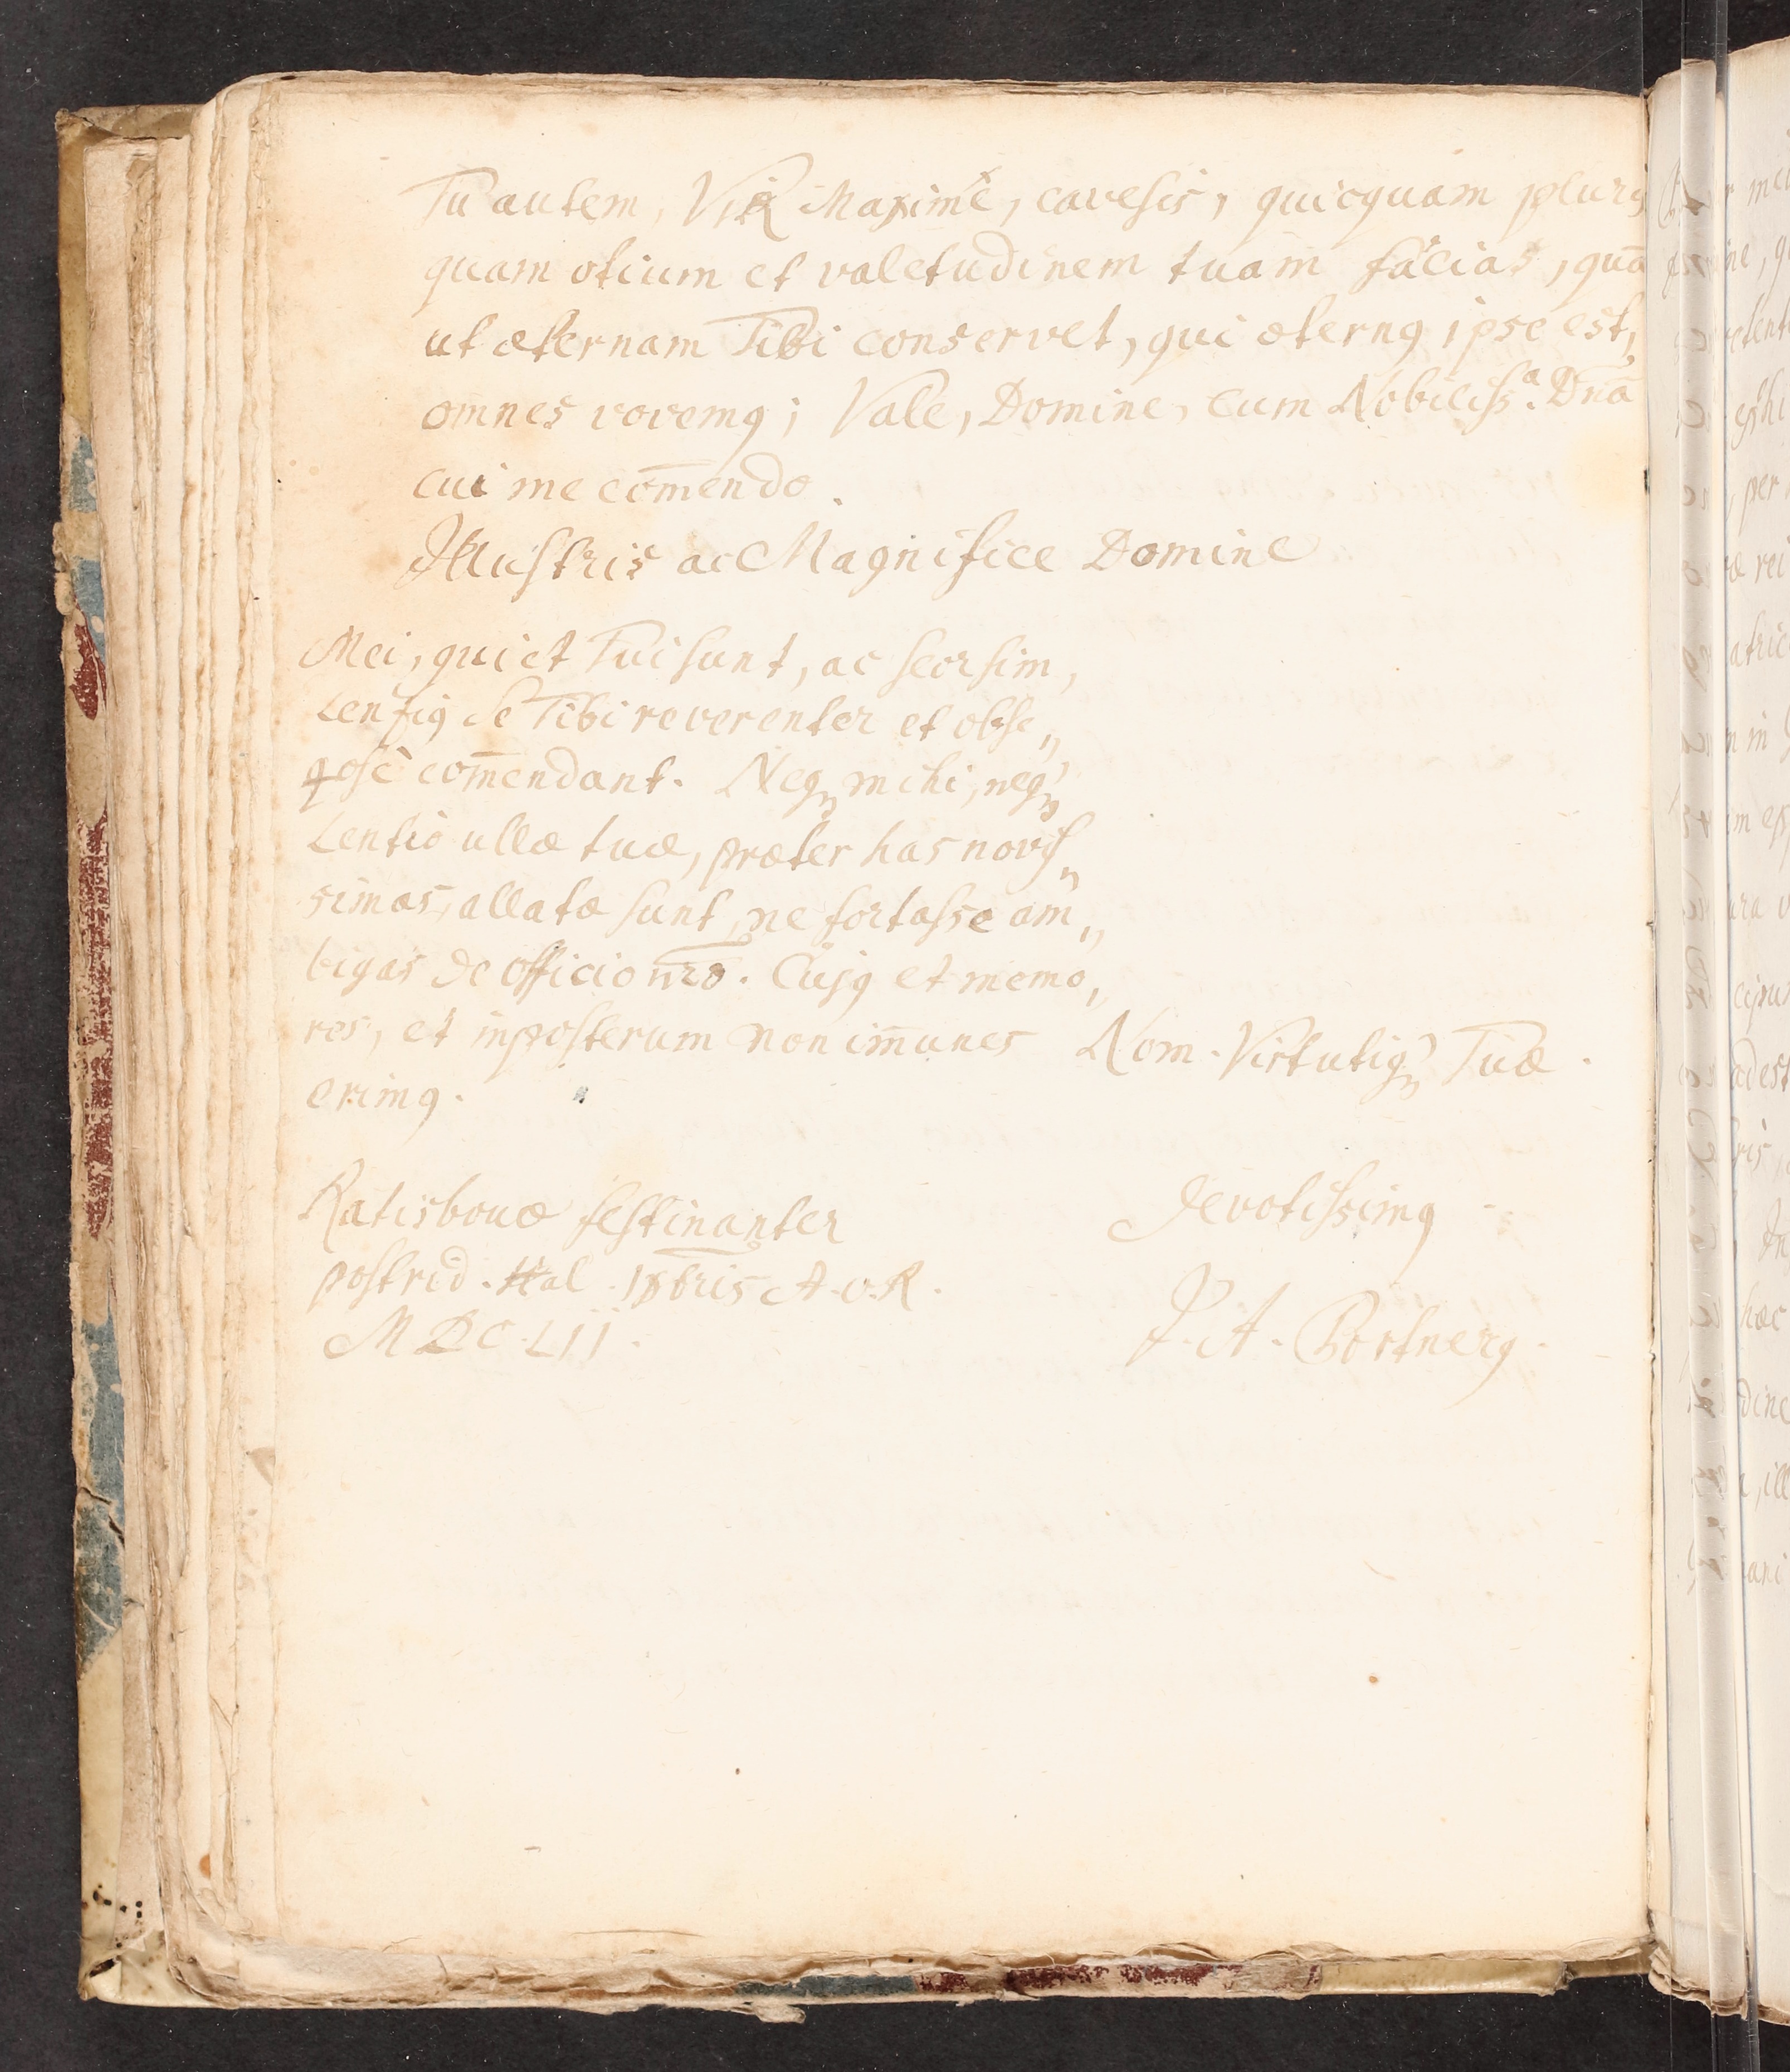 Tu autem, ViR Maxime, cavesis, quicquam plurꝰ
quam otium et valetudinem tuam facias, quā
ut æternam Tibi conservet, qui æternꝰ ipse est,
omnes vovemꝰ; Vale, Domine, cum Nobiliss.ᵃ Dnā
cui me com̄endo.
Illustris ac Magnifice Domine
Mei, qui et Tui sunt, ac seorsim,
Lentiꝰ se Tibi reverenter et obse„
qosè com̄endant. Neqꝫ mihi, neqꝫ
Lentio ullæ tuæ, præter has novis„
simas, allatæ sunt, ne fortasse am„
bigas de officio nr̄o. Cujꝰ et memo„
res, et inposterum non im̄unes
erimꝰ.
Nom. Virtutiqꝫ Tuæ.
Ratisbonæ festinanter
postrid. Kal. bris A. v. R.
MDCLII.
Devotissimꝰ
J. A. Portnerꝰ.